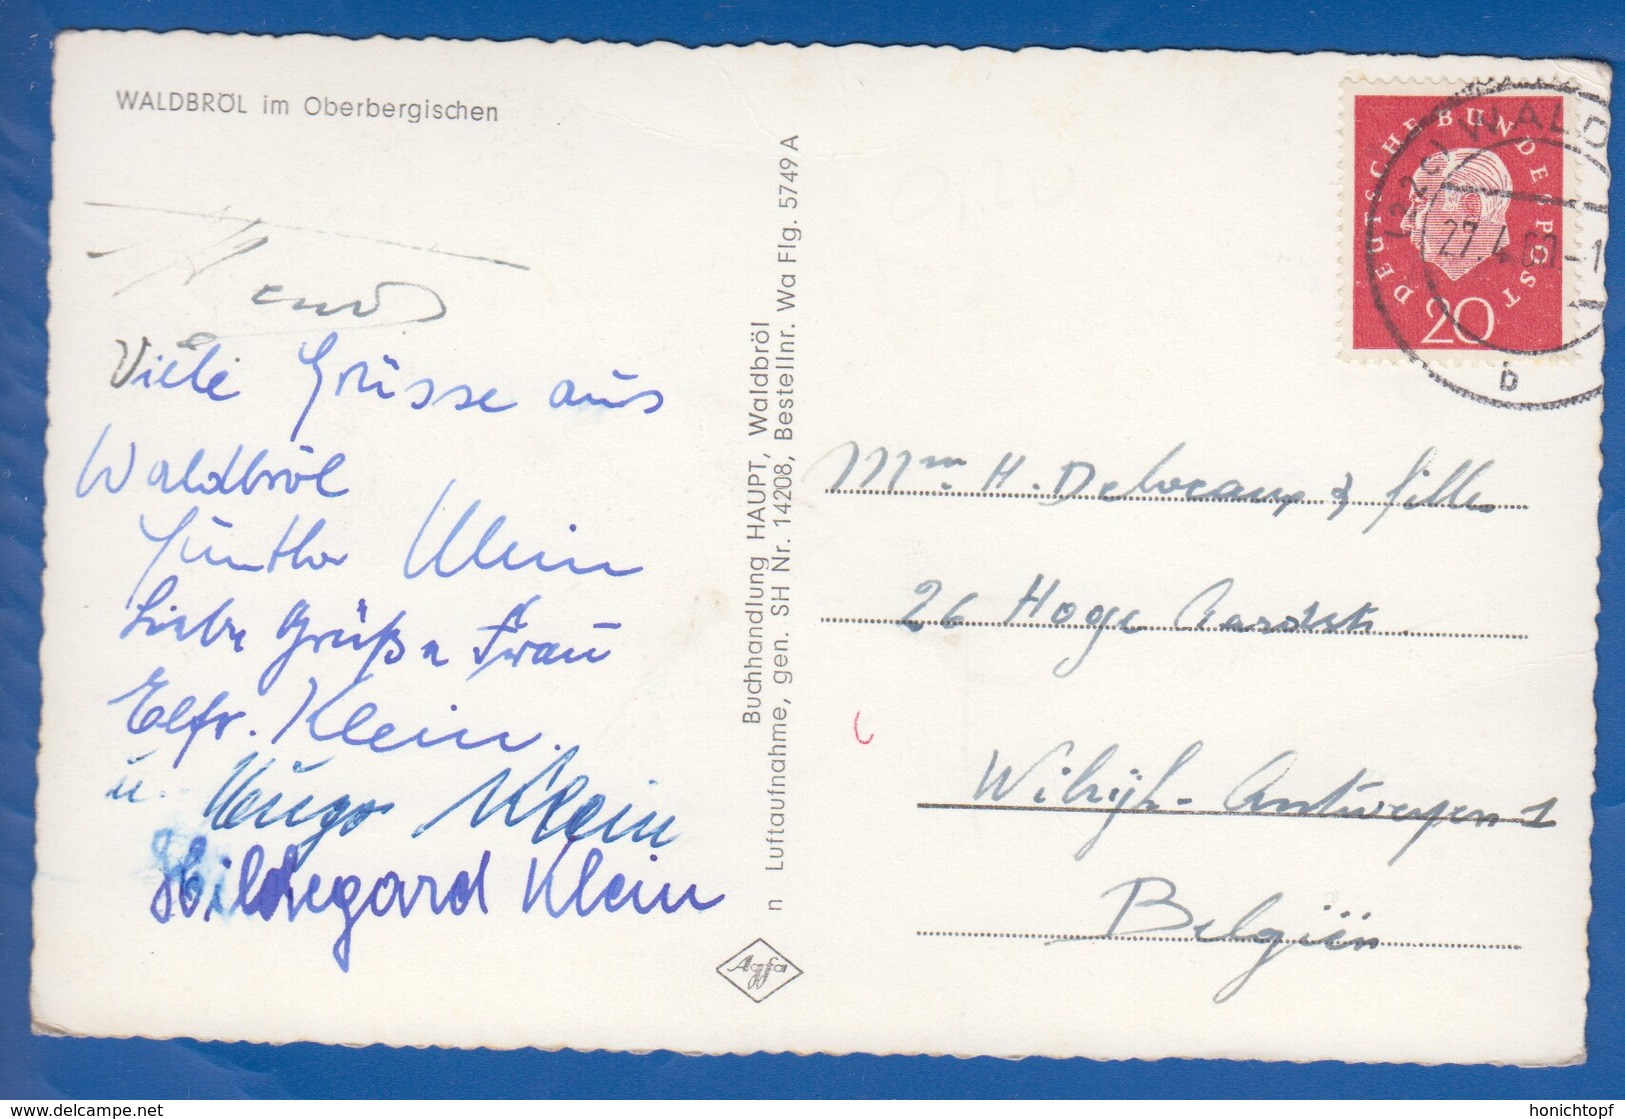 WALDBRÖL im Oberbergischen
Viele Grüsse aus
Waldbröl
Günther Klein
Liebe Grüße Frau
Elfr. Klein.
u. Hugo Klein
Hildegard Klein
Buchhandlung HAUPT, Waldbröl
n Luftaufnahme, gen. SH Nr. 14208, Bestellnr. Wa Flg. 5749 A
Agfa
DEUTSCHE BUNDESPOST
20
(22c) WALD
27.4.60-1
b
Mme H. & fille
26 Hoge
Wilrijk-Antwerpen 1
Belgiën
www.delcampe.net
honichtopf